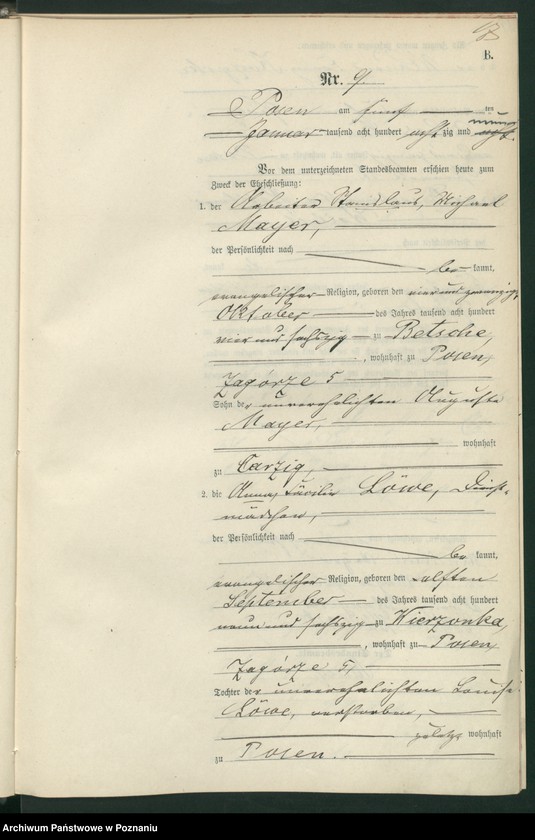 B.
Nr. 9
Posen am fünf ten
Januar tausend acht hundert acht zig und neun
Vor dem unterzeichneten Standesbeamten erschien heute zum
Zweck der Eheschließung:
1. der Arbeiter Stanislaus, Michael
Mayer,
der Persönlichkeit nach
be kannt,
evangelischer Religion, geboren den vier und zwanzigsten
Oktober des Jahres tausend acht hundert
vier und sechszig zu Betsche,
, wohnhaft zu Posen,
Zagórze 5
Sohn der unverehelichten Auguste
Mayer,
wohnhaft
zu Tarzig,
2. die Anna, Cäcilie Löwe, Dienst-
mädchen,
der Persönlichkeit nach
be kannt,
evangelischer Religion, geboren den elften
September des Jahres tausend acht hundert
neun und sechszig zu Wierzonka,
, wohnhaft zu Posen,
Zagórze 5,
Tochter der unverehelichten Louise
Löwe, verstorben,
zuletzt wohnhaft
zu Posen.
Archiwum Państwowe w Poznaniu